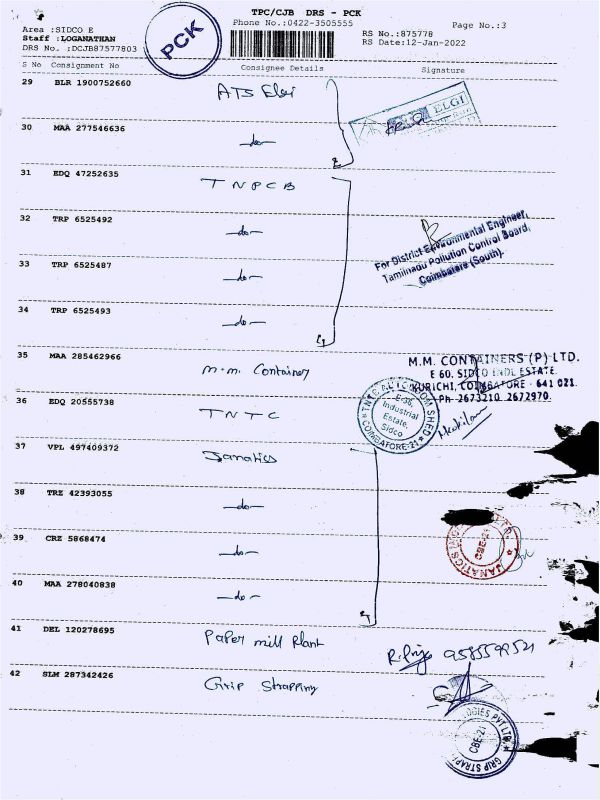 TPC/CJB DRS - PCK
Phone No.:0422-3505555
Page No.:3
Area :SIDCO E
Staff :LOGANATHAN
DRS No. :DCJB87577803
PCK
RS No.:875778
RS Date:12-Jan-2022
S No Consignment No Consignee Details Signature
29 BLR 1900752660 ATS Elgi
ELGI
30 MAA 277546636 -do-
31 EDQ 47252635 TNPCB
32 TRP 6525492 -do-
For District Environmental Engineer,
Tamilnadu Pollution Control Board,
Coimbatore (South).
33 TRP 6525487 -do-
34 TRP 6525493 -do-
35 MAA 285462966 M.M. Container
M.M. CONTAINERS (P) LTD.
E 60, SIDCO INDL ESTATE.
KURICHI, COIMBATORE - 641 021.
Ph 2673210 2672970.
36 EDQ 20555738 TNTC
TNTC AUTO COM SHED
E-39,
Industrial
Estate,
Sidco
COIMBATORE-21
37 VPL 497409372 Janatics
38 TRZ 42393055 -do-
39 CRZ 5868474 -do-
JANATICS
CBE-21
40 MAA 278040838 -do-
41 DEL 120278695 Paper mill Plant
9585599521
42 SLM 287342426 Grip Strapping
PVT LTD
CBE-21
GRIP STRAP